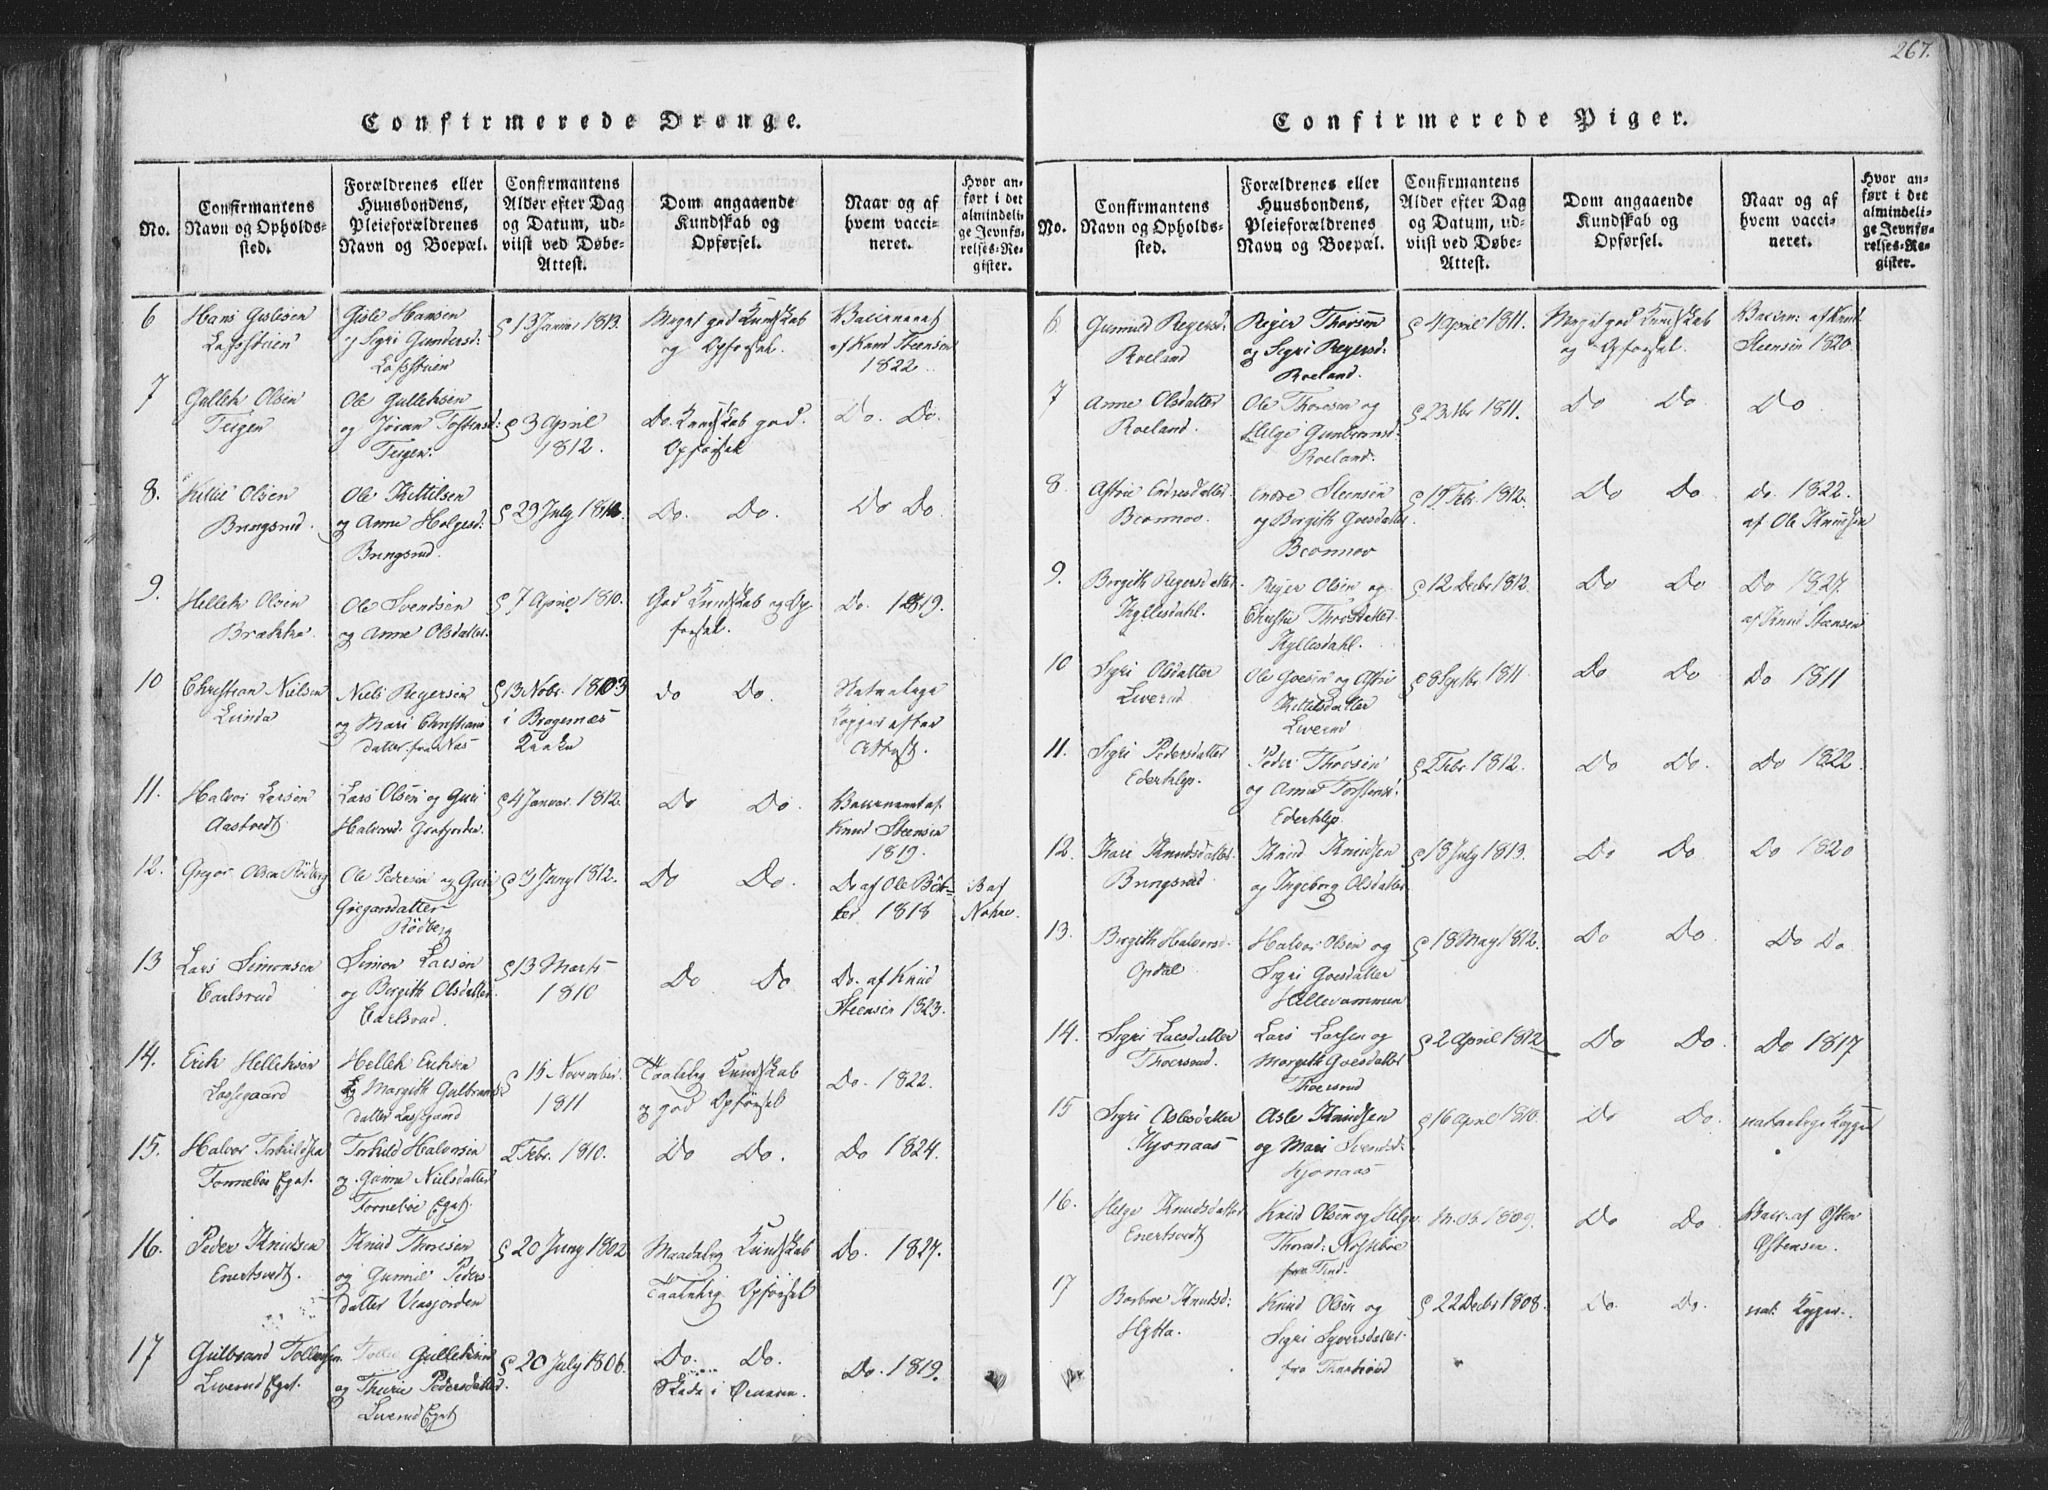 267.
Confirmerede Drenge.
No.
Confirmantens Navn og Opholdssted.
Forældrenes eller Huusbondens, Pleieforældrenes Navn og Boepæl.
Confirmantens Alder efter Dag og Datum, udviist ved Døbe-Attest.
Dom angaaende Kundskab og Opførsel.
Naar og af hvem vaccineret.
Hvor anført i det almindelige Jevnførelses-Register.
6 Hans Gislesen
Gisle Hansen
og Sigri Gundersd:
13 Januar 1813.
Meget god Kundskab
og Opførsel.
Vaccineret
af Knud Steensen
1822
7 Gulleh Olsen
Teigen
Ole Gullehsen
og Jøran Tostensd:
Teigen.
3 April
1812.
Do. Kundskab god
Opførsel
Do. Do.
8. Kittil Olsen
Bringsrud.
Ole Kittilsen
og Anne Holgesd:
Bringsrud
23 July
Do. Do.
Do Do.
9. Helleh Olsen
Brække.
Ole Svendsen
og Anne Olsdatter
7 April 1810.
God Kundskab og Op-
førsel.
Do. 1819.
10 Christian Nielsen
Lunda
Niels Regersen
og Mari Christians
datter fra Næs
13 Nobr. 1803
i Bragernæs
do Do.
Naturlige
Kopper efter
Attest.
11. Halvor Larsen
Aastvedt
Lars Olsen og Guri
Halvorsd.
4 Januar. 1812.
Do Do.
Vaccineret af
Knud Steensen
1819.
12. Gregar Olsen Rödberg
Ole Pedersen og Guri
Gregarsdatter
Rödberg
3 Juny 1812.
Do Do.
Do af Ole
1818
13 Lars Simonsen
Carlsrud
Simon Larsen
og Birgith Olsdatter
Carlsrud.
13 Marts
1810
Do Do
Do. af Knud
Steensen 1823.
14. Erik Hellehsen
Lassegaard
Helleh Eriksen
og Margith Gulbrands
datter Lassegaard
15 November.
1811
Taalelig Kundskab
og god Opførsel
Do. 1822.
15. Halvor Torkildsen
Tonnebøe Eget.
Torkild Halvorsen
og Gunne Nielsdatter
Tonnebøe Eget
2 Febr. 1810.
Do Do.
Do 1824.
16. Peder Knudsen
Enertsvedt.
Knud Thoresen
og Gunnil Peders
datter
20 Juny 1802
Maadelig Kundskab
Taalelig Opførsel
Do. 1827.
17 Gulbrand Tollefsen
Liverud Eget.
Gullehsen
og Thurie Pedersdatter
Liverud Eget
20 July 1806.
Do. Do.
Skade i
Do. 1819.
Confirmerede Piger.
No.
Confirmantens Navn og Opholdssted.
Forældrenes eller Huusbondens, Pleieforældrenes Navn og Boepæl.
Confirmantens Alder efter Dag og Datum, udviist ved Døbe-Attest.
Dom angaaende Kundskab og Opførsel.
Naar og af hvem vaccineret.
Hvor anført i det almindelige Jevnførelses-Register.
6 Gunnild Regersd:
Roeland
Reyer Thorsen
og Sigri Reyersd:
Roeland.
4 April 1811.
Meget god Kundskab
og Opførsel.
Vaccin: af Knud
Steensen 1820.
7 Anne Olsdatter
Roeland.
Ole Thoresen og
Helge
Roeland.
1811.
Do Do.
Do
8. Astrie Endresdatter
Endre Steensen
og Birgith Goesdatter
17 Febr. 1812.
Do Do.
Do. 1822.
af Ole Knudsen
9. Birgith Regersdatter
Kyllesdahl.
Reyer Olsen og
Christie Thorsdatter
Kyllesdahl.
12 Decbr 1812.
Do Do.
Do 1827.
af Knud Steensen
10 Sigri Olsdatter
Liverud
Ole Goesen og Astri
Kittilsdatter
Liverud
8 Septbr. 1811
Do Do.
Do 1811
11. Sigri Pedersdatter
Ederklep.
Peder Thorsen
og Anne Torstensd:
Ederklep
2 Febr 1812.
Do Do.
Do 1822
12. Kari Knudsdatter
Bringsrud
Knud Knudsen
og Ingeborg Olsdatter
18 July 1813.
Do Do.
Do 1820
13. Birgith Halvorsd.
Opdal
Halvor Olsen og
Sigri Goesdatter
Hallevammen
18 May 1812.
Do Do.
Do Do
14. Sigri Larsdatter
Thoersrud.
Lars Larsen og
Margith Goesdatter
Thoersrud
2 April 1812
Do Do.
Do 1817
15 Sigri Aslesdatter
Kjonaas
Asle Knudsen
og Mari Svendsd:
Kjonaas
16 April 1810.
Do Do.
naturlige Kopper
16. Helge Knudsdatter
Enertsvedt
Knud Olsen og Helge
Thorsd:
fra Tind.
1809.
Do Do.
Vacc. af Østen
Østensen.
17 Barbroe Knudsd:
Hytta.
Knud Olsen og
Sigri Syversdatter
22 Decbr 1808.
Do. Do.
nat: Kopper.